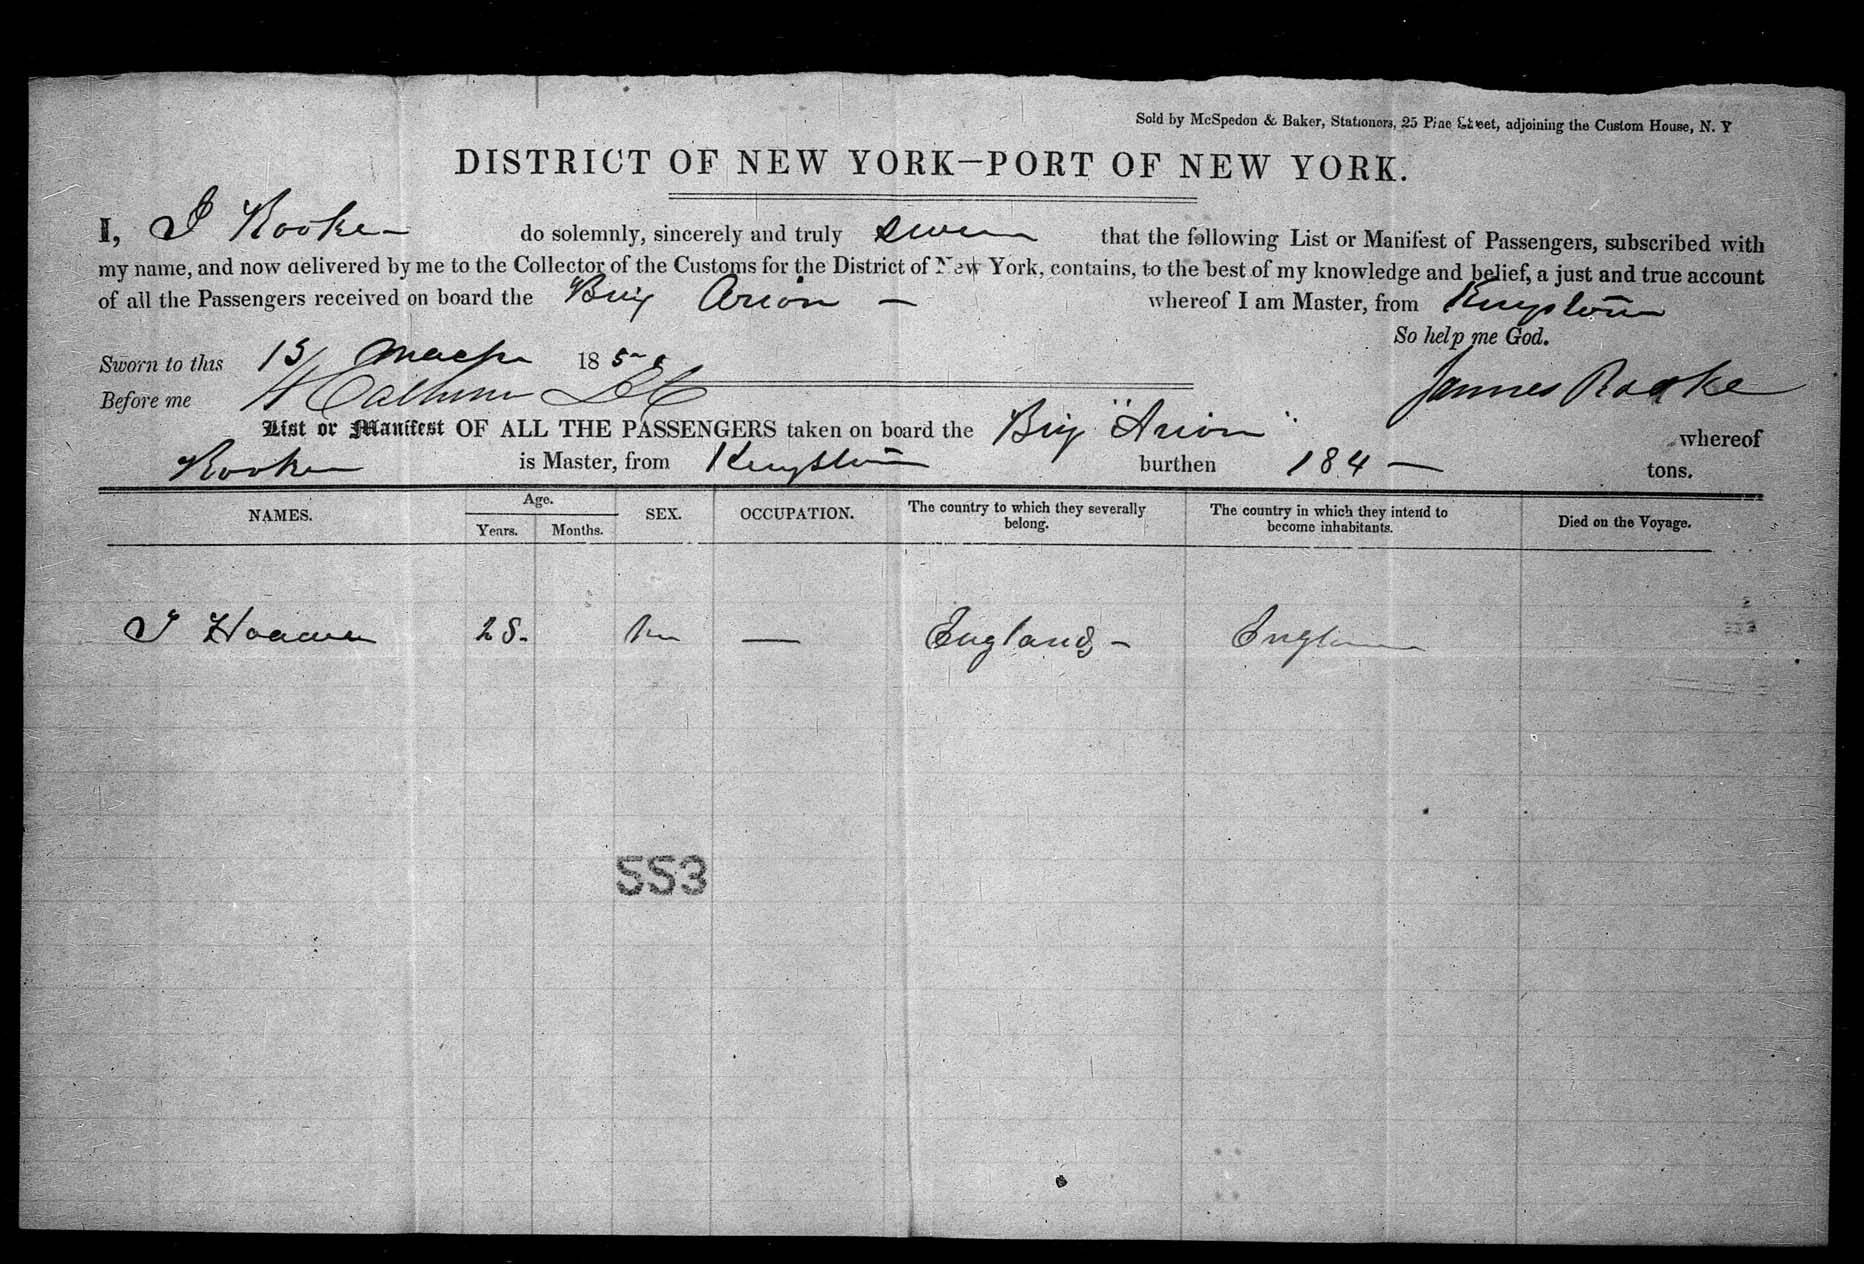 Sold by McSpedon & Baker, Stationers, 25 Pine Street, adjoining the Custom House, N. Y
DISTRICT OF NEW YORK—PORT OF NEW YORK.
I, J Rooke do solemnly, sincerely and truly swear that the following List or Manifest of Passengers, subscribed with
my name, and now delivered by me to the Collector of the Customs for the District of New York, contains, to the best of my knowledge and belief, a just and true account
of all the Passengers received on board the Brig Arion — whereof I am Master, from Kingston
So help me God.
Sworn to this 13 March 185
Before me Calhoun James Rooke
List or Manifest OF ALL THE PASSENGERS taken on board the Brig "Arion" whereof
Rooke is Master, from Kingston burthen 184 — tons.
NAMES. Age. SEX. OCCUPATION. The country to which they severally belong. The country in which they intend to become inhabitants. Died on the Voyage.
Years. Months.
J 28. — England — England
553